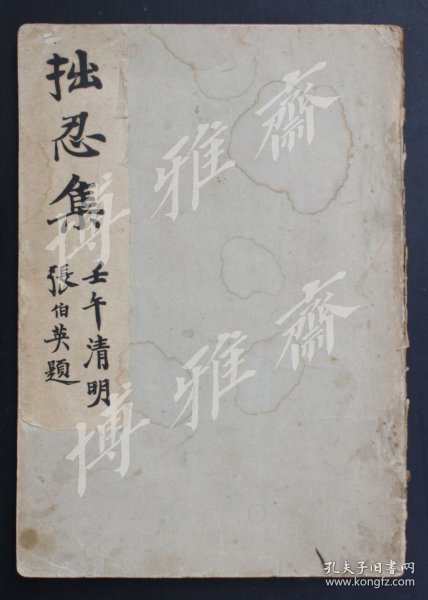 拙忍集
壬午清明
張伯英題
博雅齋
博雅齋
孔夫子旧書网
www.kongfz.com